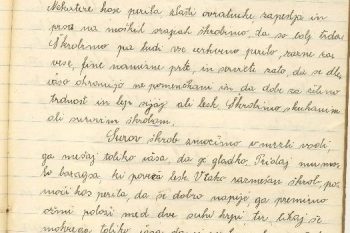 Nekatere kose perila zlasti ovratnike zapestja in
prsa na moških srajcah škrobimo, da so bolj trda.
Škrobimo pa tudi vse cerkveno perilo, razne za-
vese, fine namizne prte, in serviete zato, da se dlje
časa ohranijo in da dobe zaželeno
trdnost in lep sijaj ali lesk. Škrobimo s kuhanim
ali surovim škrobom.
Surov škrob zmočimo v mrzli vodi,
ga mešaj toliko časa, da je gladko. Pridaj mu mar-
boraksa ki poveča lesk. V tako razmešan škrob po-
moči kos perila, da se dobro napije ga premenu
ožmi položi med dve suhi krpi ter likaj še
mokrega toliko časa, da